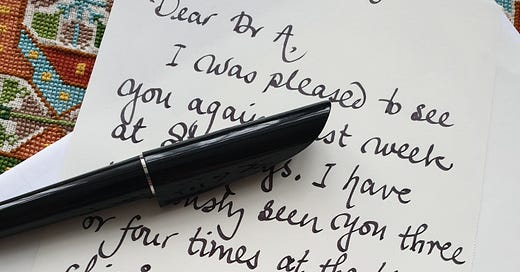 Dear Dr A,
I was pleased to see
you again
at last week
I have
seen you three
or four times at the